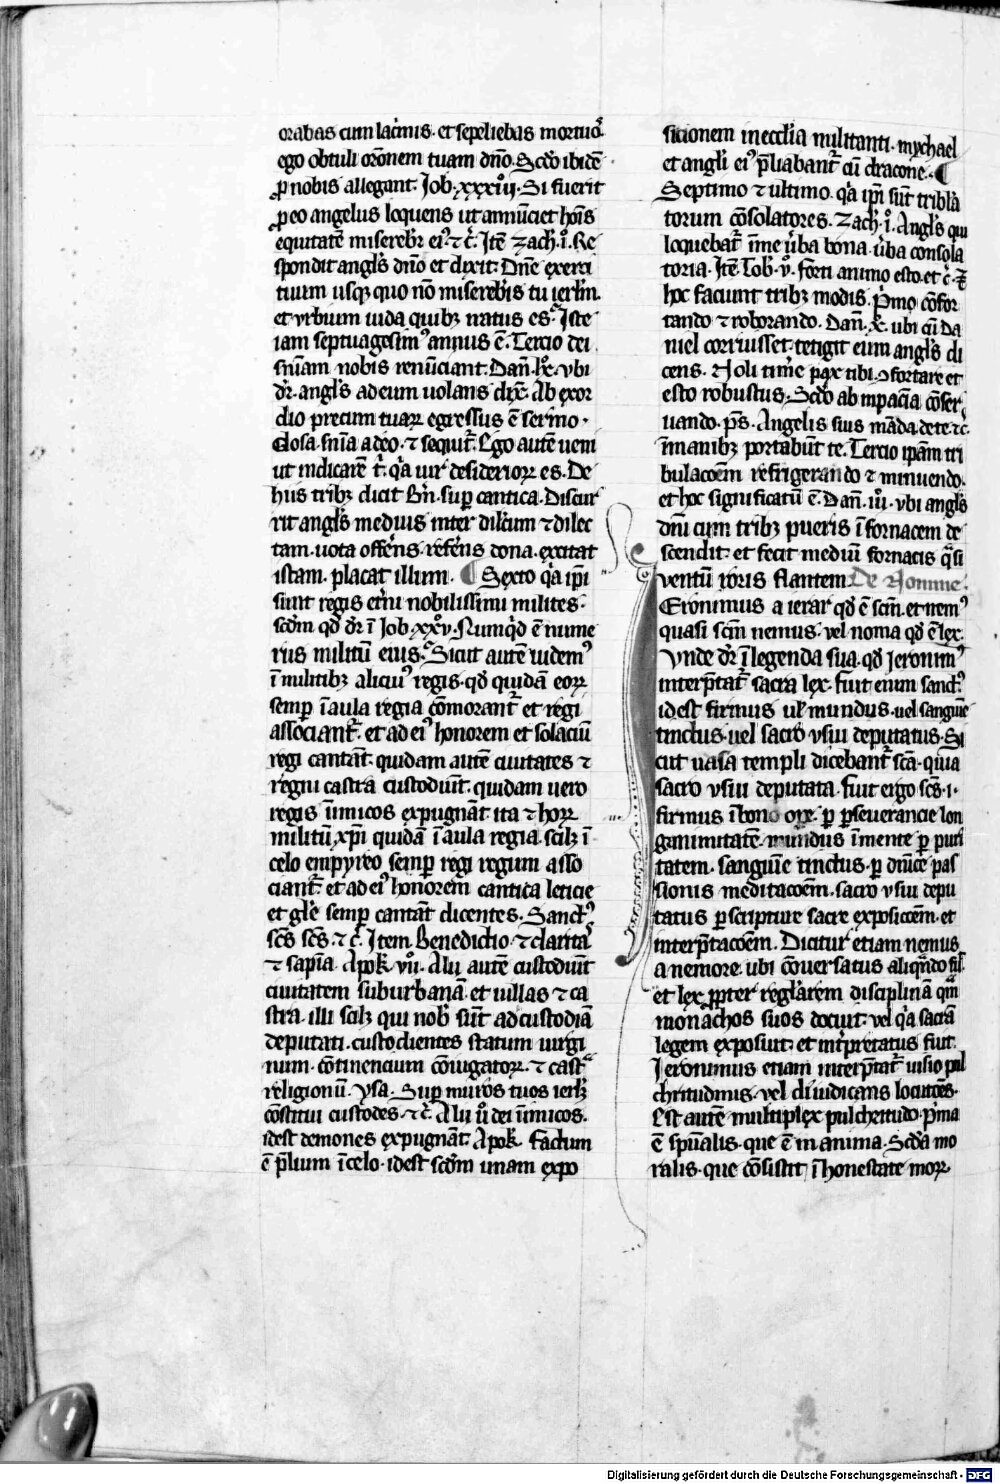 orabas cum lac̄mis. et sepeliebas mortuoſ
ego obtuli orōnem tuam dn̄o. Scd̄o ibidē
ꝓ nobis allegant. Job. xxxiij. Si fuerit
ꝓ eo angelus loquens ut annūciet hoīs
equitatē miserebr̄ ei⁹. ⁊ c̄. Itē Zach. i. Re
spondit angl̄s dn̄o et dixit. Dn̄e exerci
tuum usq; quo nō misereb̄is tu ierl̄m.
et vrbium iuda quib; natus es. Iste
iam septuagesim⁹ annus ē. Tercio dei
sn̄iam nobis renūciant. Dan. ix. vbi
dr̄. angl̄s ad eum uolans dix̄. Ab exor
dio precum tuaꝝ egressus ē sermo.
Glosa. sn̄ia a deo. ⁊ sequit̄. Ego autē ueni
ut indicarē t̄. q̄a uir desiderioꝝ es. De
hiis trib; dicit Br̄n. sup̄ cantica. Discur
rit angl̄s medius inter dil̄cum ⁊ dilec
tam. uota offerēs. referēs dona. excitat
istam. placat illum. ¶ Sexto q̄a ip̄i
sunt regis et̄ni nobilissimi milites.
scd̄m qd̄ dr̄ ī Job. xxv. Numq̄d ē nume
rus militū eius. Sicut autē uidem⁹
ī militib; alicui⁹ regis. qd̄ quidā eoꝝ
semp̄ ī aula regia cōmorant̄ et regi
associant̄. et ad ei⁹ honorem et solaciū
regi cantāt. quidam autē ciuitates ⁊
regni castra custodiūt. quidam uero
regis inīmicos expugnāt. ita ⁊ hoꝝ
militū xp̄i quidā ī aula regia. scil; ī
celo empyreo semp̄ regi regum asso
ciant̄. et ad ei⁹ honorem cantica leticie
et gl̄e semp̄ cantāt dicentes. Sanct⁹
sc̄s sc̄s. ⁊ c̄. Item Benedictio. ⁊ clarita⸗
⁊ sapīa. Apok. vij. Alij autē custodiūt
ciuitatem suburbanā. et uillas ⁊ ca
stra. illi scil; qui nob̄ sūt ad custodiā
deputati. custodientes statum uirgi
num. cōtinencium cōiugatoꝝ. ⁊ cast̄
religionū. Ysa. Sup̄ muros tuos ierl̄;
cōstitui custodes. ⁊ c̄. Alij ū dei inīmicos.
idest demones expugnāt. Apok. Factum
ē p̄lium ī celo. idest scd̄m unam expo
sicionem in eccl̄ia militanti. mychael
et angl̄i ei⁹ p̄liabant̄ cū dracone. ¶
Septimo ⁊ ultimo. q̄a ip̄i sūt tribl̄a
torum cōsolatores. Zach. i. Angl̄s qui
loquebat̄ in me ūba bona. ūba consola
toria. Itē Tob. v. Forti animo esto. et c̄. ⁊
hoc faciunt trib; modis. P̄mo cōfor
tando ⁊ roborando. Dan. x. ubi cū Da
niel corruisset. tetigit eum angl̄s di
cens. Noli tim̄e pax tibi. ɔfortare et
esto robustus. Scd̄o ab inpacīa cōser
uando. p̄s. Angelis suis mādā de te ⁊c̄.
ī manib; portabūt te. Tercio ip̄am tri
bulacōem refrigerando ⁊ minuendo.
et hoc significatū ē. Dan. iij. vbi angl̄s
dn̄i cum trib; pueris ī fornacem de
scendit. et fecit mediū fornacis q̄si
ventū roris flantem. De Nomine.
Eronimus a ierar qd̄ ē sc̄m. et nem⁹
quasi sc̄m nemus. vel noma qd̄ ē lex.
Vnde dr̄ ī legenda sua. qd̄ Jeronim⁹
interp̄tat̄ sacra lex. fuit enim sanct⁹.
idest firmus ul̄ mundus. uel sanguīe
tinctus. uel sacro vsui deputatus. Si
cut uasa templi dicebant̄ sc̄a. quia
sacro vsui deputata. Fuit ergo sc̄s. i.
firmus ī bono oꝑe. ꝑ ꝑseuerancie lon
ganimitatē. mundus ī mente ꝑ puri
tatem. sanguīe tinctus. ꝑ dn̄ice pas
sionis meditacōem. sacro vsui depu
tatus ꝑ scripture sacre exposicōem. et
interp̄tacōem. Dicitur etiam nemus
a nemore. ubi cōuersatus aliq̄ndo fuit
et lex ꝓpter regl̄arem disciplinā qm̄
monachos suos docuit. vel q̄a sacrā
legem exposuit. et int̄pretatus fuit.
Jeronimus etiam interp̄tat̄ uisio pul
chritudinis. vel diiudicans locucōes.
Est autē multiplex pulchritudo. P̄ma
ē spūalis. que ē in anima. Scd̄a mo
ralis. que cōsistit ī honestate moꝝ.
Digitalisierung gefördert durch die Deutsche Forschungsgemeinschaft - DFG